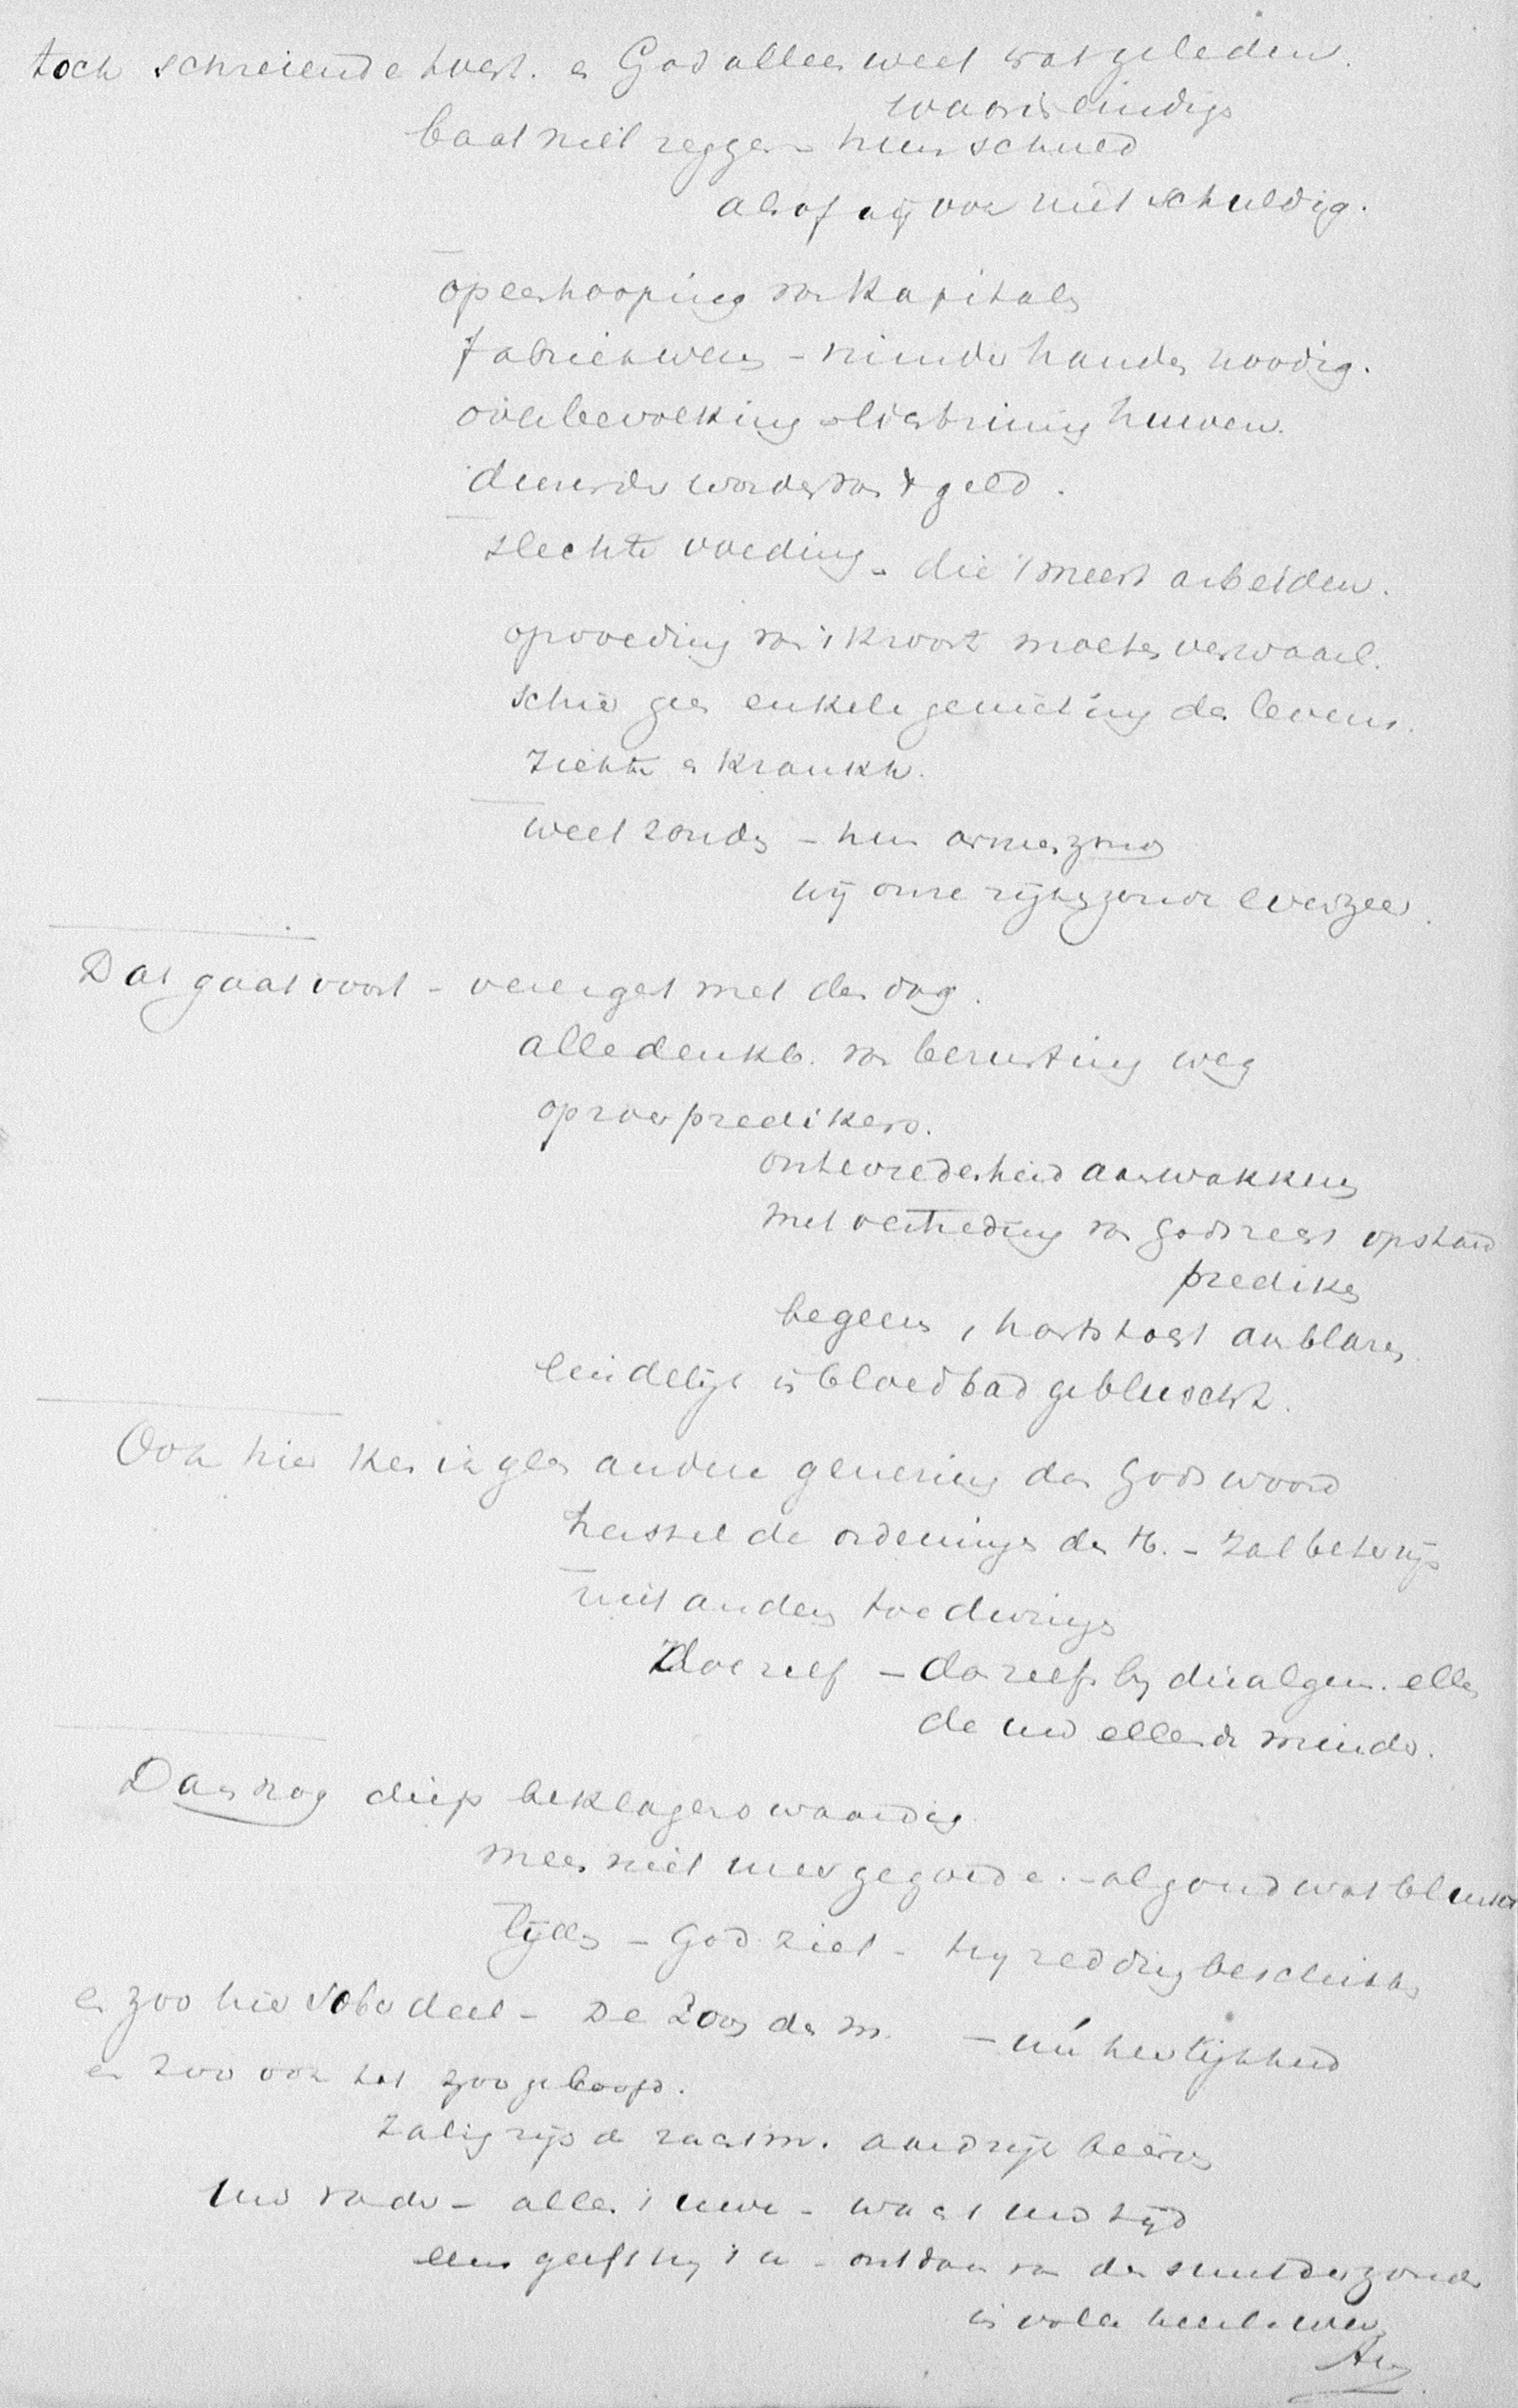 toch schreiende toest. en God alleen weet wat geleden.
waar is eindig
baat niet zeggen hun schuld
alsof wij ook niet schuldig.
opeenhooping van Kapitale
fabriekwezen - minder handen noodig.
overbevolking - huwen.
duurder worden van 't geld.
slechte voeding - die 't meest arbeiden.
opvoeding van 't kroost moeten verwaarl.
schier geen enkele genieting des levens.
ziekte en krankh.
weet zonde - hun armenzond
wij onze rijkezonde evenzeer.
Dat gaat voort - verergert met den dag.
alle denkb. van berusting weg
oproerpredikers.
ontevredenheid aanwakkeren
met vertreding van Gods recht opstand
prediken
begeeren, hartstocht aanblazen
eindelijk in bloedbad gebluscht.
Ook hier ken ik geen andere genezing dan Gods woord
herstel de ordeningen des H. - zal beter zijn
niet anderen toedwingen
doe zelf - dan zelfs bij die algem. ellen
de uw ellende minder.
Dan nog diep beklagenswaardig
meen niet meer gegoede. - al goud wat blinkt
lijden - God ziet - Hij redding beschikken
en zoo hier sober deel - De Zoon des m. - nú heerlijkheid
en zoo ook het zoo gelooft.
Zalig zijn de zachtm. aardrijk beërven
uw vader - alles 't uwe - wacht uw tijd
eens geeft hij 't u - ontdaan van den smet der zonde
in volle heerl. wezen
Am